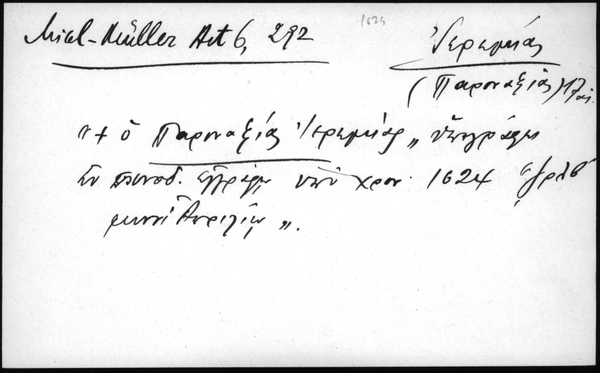 Micl-Müller Act 6, 292
1624
Ἱερεμίας
(Παροναξίας) 17 αἰ.
"+ ὁ Παροναξίας Ἱερεμίας" ὑπογράφει
ἐν συνοδ. ἐγγράφῳ ὑπὸ χρον. 1624 "͵αχκδʹ
μηνὶ Ἀπριλίῳ".